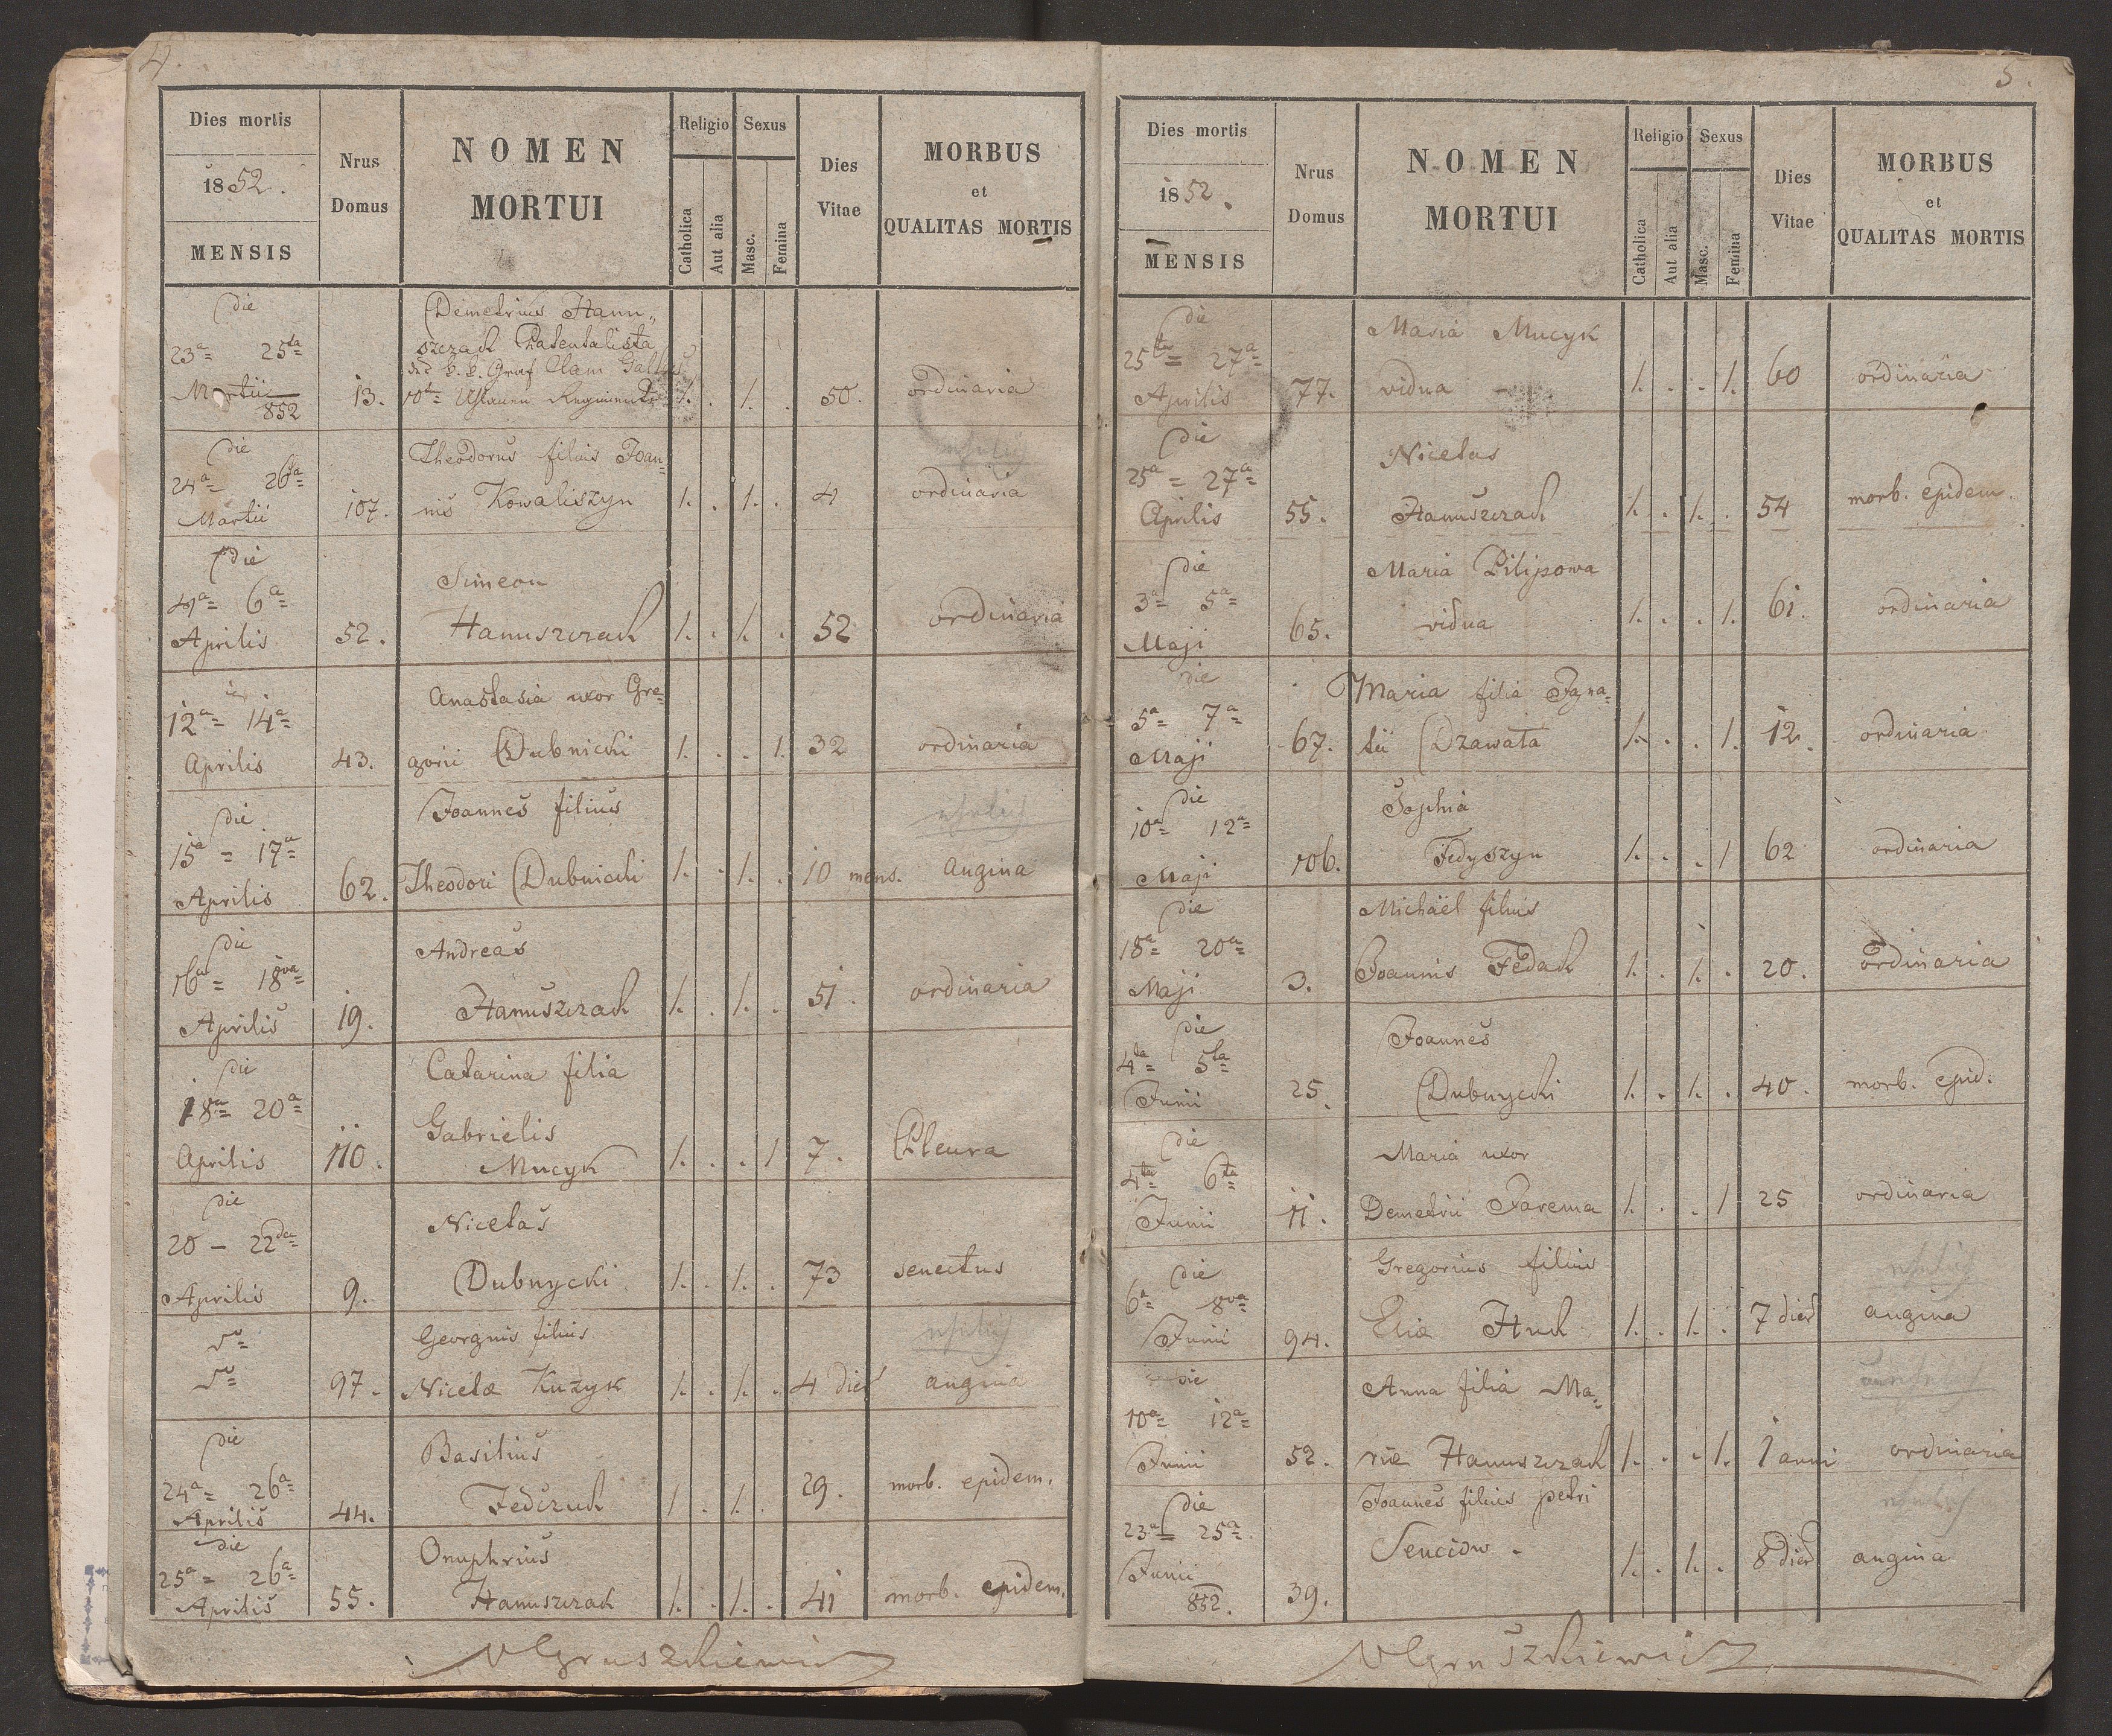 4.
Dies mortis
1852.
MENSIS
Nrus
Domus
NOMEN
MORTUI
Religio
Catholica
Aut alia
Sexus
Masc.
Femina
Dies
Vitae
MORBUS
et
QUALITAS MORTIS
die
23a 25ta
Martii
852
13.
Demetrius Hanu„
szczach Patentalista
k. k. Graf Clam Gallas
10t Uhlanen Regiments
1. . 1. . 50. ordinaria
die
24a 26a
Martii
107.
Theodorus filius Joan
nis Kowaliszyn
1. . 1. . 4 ordinaria
die
4a 6a
Aprilis
52.
Simeon
Hanuszczach
1. . 1. . 52 ordinaria
12a 14a
Aprilis
43.
Anastasia uxor Gre
gorii Dubnicki
1. . . 1. 32 ordinaria
die
15a = 17a
Aprilis
62.
Joannes filius
Theodori Dubnicki
1. . 1. . 10 mens. angina
die
16a = 18va
Aprilis
19.
Andreas
Hanuszczach
1. . 1. . 51. ordinaria
die
18a 20a
Aprilis
110.
Catarina filia
Gabrielis
Mucyk
1. . . 1 7. Pleura
die
20 - 22da
Aprilis
9.
Nicetas
Dubnycki
1. . 1. . 73 senectus
97.
Georgius filius
Nicetæ Kużyk
1. . 1. . 4 dies angina
die
24a 26a
Aprilis
44.
Basilius
Fedczuch
1. . 1. 29. morb. epidem.
die
25a = 26a
Aprilis
55.
Onuphrius
Hanuszczach
1. . 1. . 41 morb. epidem.
5.
Dies mortis
1852.
MENSIS
Nrus
Domus
NOMEN
MORTUI
Religio
Catholica
Aut alia
Sexus
Masc.
Femina
Dies
Vitae
MORBUS
et
QUALITAS MORTIS
die
25ta = 27a
Aprilis
77.
Maria Mucyk
vidua
1. . . 1. 60 ordinaria
die
25a = 27a
Aprilis
55.
Nicetas
Hanuszczach
1. . 1. . 54 morb. epidem.
die
3a 5a
Maji
65.
Maria Pilipowa
vidua
1. . . 1. 61. ordinaria
die
5a 7a
Maji
67.
Maria filia Igna
tii Dzawata
1. . . 1. 12. ordinaria
die
10a 12a
Maji
106.
Sophia
Fedyszyn
1. . . 1 62 ordinaria
die
18a 20a
Maji
3.
Michaël filius
Joannis Fedach
1. . 1. . 20. ordinaria
die
4ta 5ta
Junii
25.
Joannes
Dubnycki
1. . 1. . 40. morb. epid.
die
4ta 6ta
Junii
11.
Maria uxor
Demetrii Jarema
1. . . 1 25 ordinaria
die
6a 8va
Junii
94.
Gregorius filius
Eliæ Huch
1. . 1. . 7 dies angina
die
10a 12a
Junii
52.
Anna filia Ma
riæ Hanuszczach
1. . . 1. 1 anni ordinaria
die
23a 25a.
Junii
852.
39.
Joannes filius petri
Senciow.
1. . 1. . 8 dies angina